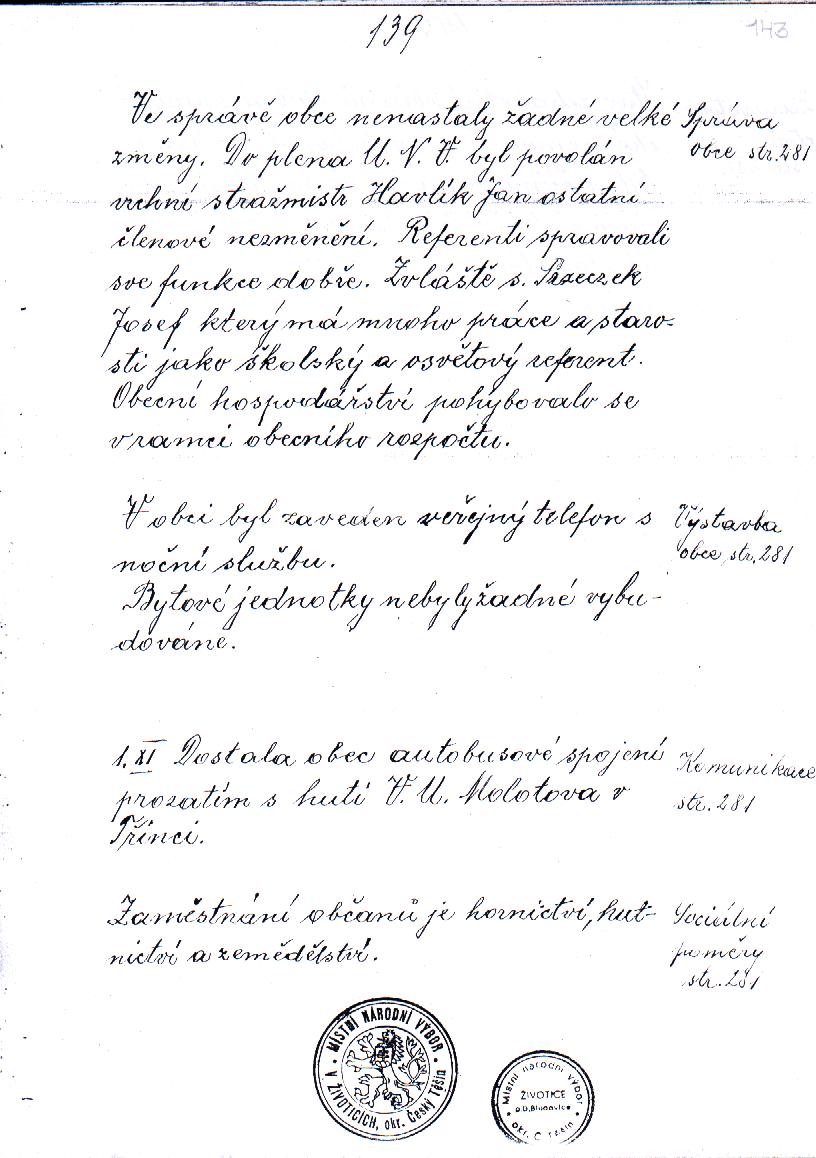 139
143
Ve správě obce nenastaly žádné velké
změny. Do plena U. N. V. byl povolán
vrchní stražmistr Havlík Jan ostatní
členové nezměnění. Referenti spravovali
sve funkce dobře. Zvláště s. Szeczek
Josef který má mnoho práce a staro-
sti jako školský a osvětový referent.
Obecní hospodářství pohybovalo se
v ramci obecního rozpočtu.
Správa
obce str. 281
V obci byl zaveden veřejný telefon s
noční službu.
Bytové jednotky nebyly žadné vybu-
dováne.
Výstavba
obce, str. 281
1. XI Dostala obec autobusové spojení
prozatím s hutí V. U. Molotova v
Třinci.
Komunikace
str. 281
Zaměstnání občanů je hornictví, hut-
nictví a zemědělství.
Sociální
poměry
str. 281
MÍSTNÍ NÁRODNÍ VÝBOR
V ŽIVOTICÍCH, okr. Český Těšín
Místní národní výbor
ŽIVOTICE
p.D.Bludovice
okr. Č. Těšín